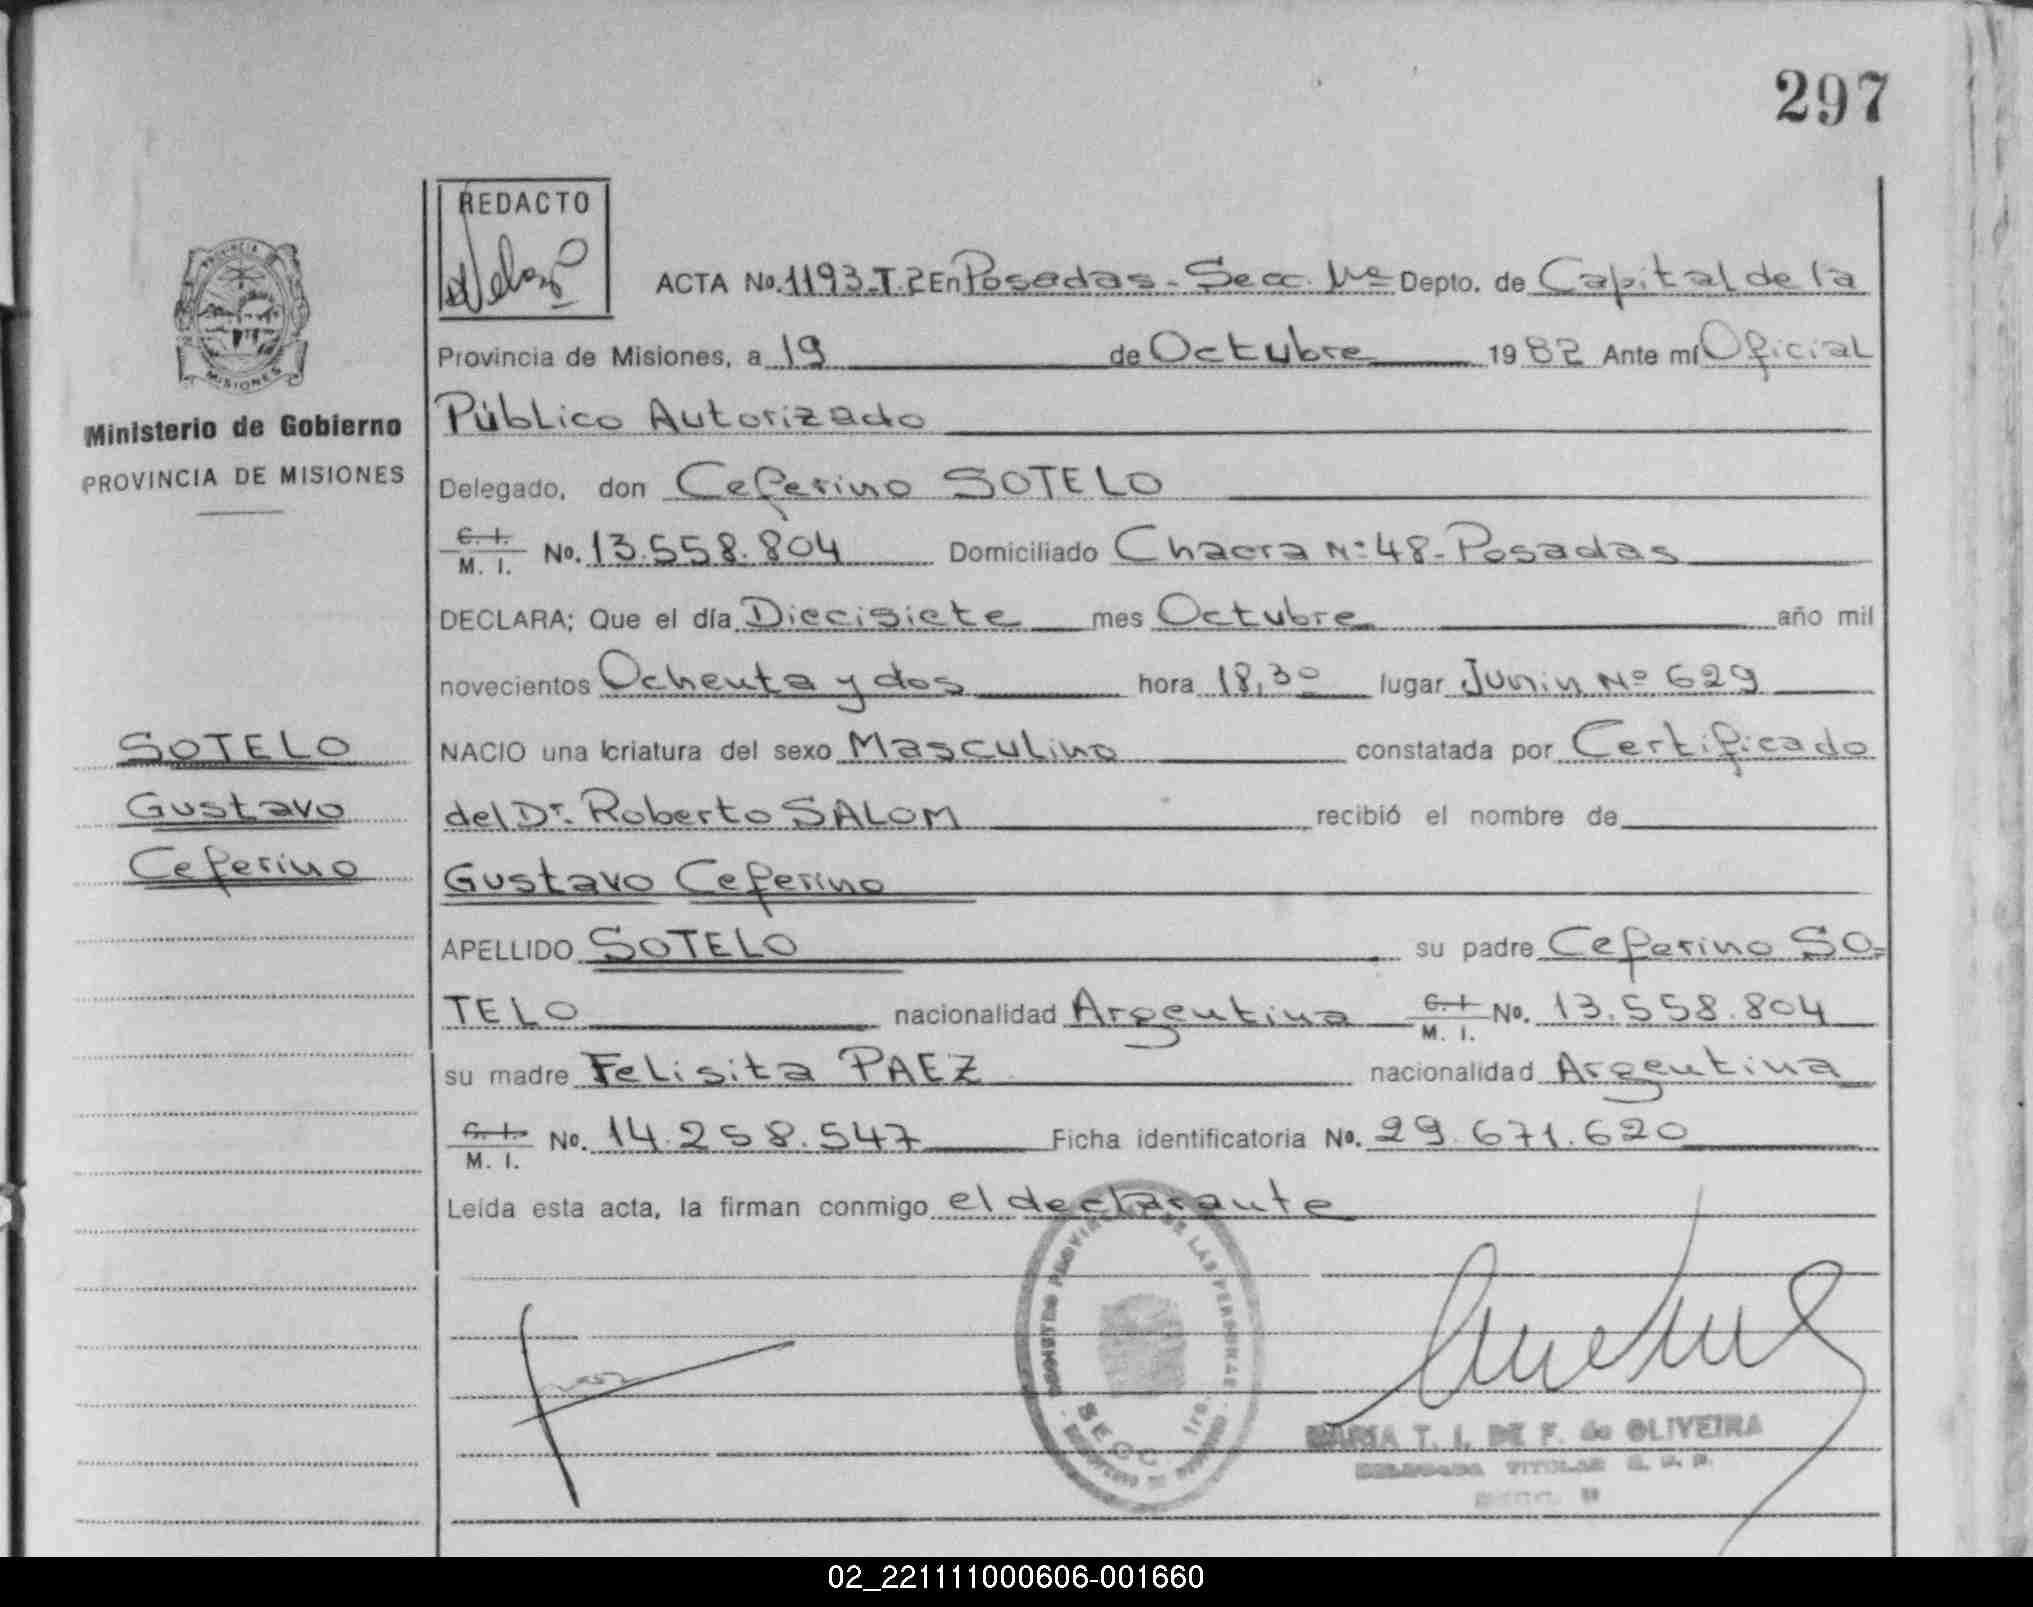 297
REDACTO
ACTA No. 1193.T.2 En Posadas - Secc. 1ra Depto. de Capital de la
PROVINCIA
MISIONES
Provincia de Misiones, a 19 de Octubre 1982 Ante mí Oficial
Ministerio de Gobierno
Público Autorizado
PROVINCIA DE MISIONES
Delegado, don Ceferino SOTELO
C. I. M. I. No. 13.558.804 Domiciliado Chacra Nº 48 - Posadas
DECLARA; Que el día Diecisiete mes Octubre año mil
novecientos Ochenta y dos hora 18,30 lugar Junin Nº 629
SOTELO
NACIO una criatura del sexo Masculino constatada por Certificado
Gustavo
del Dr. Roberto SALOM recibió el nombre de
Ceferino
Gustavo Ceferino
APELLIDO SOTELO su padre Ceferino SO=
TELO nacionalidad Argentina C. I. M. I. No. 13.558.804
su madre Felisita PAEZ nacionalidad Argentina
C. I. M. I. No. 14.258.547 Ficha identificatoria No. 29.671.620
Leída esta acta, la firman conmigo el declarante
DE LAS PERSONAS
MARIA T. I. DE F. de OLIVEIRA
DELEGADA TITULAR
02_221111000606-001660